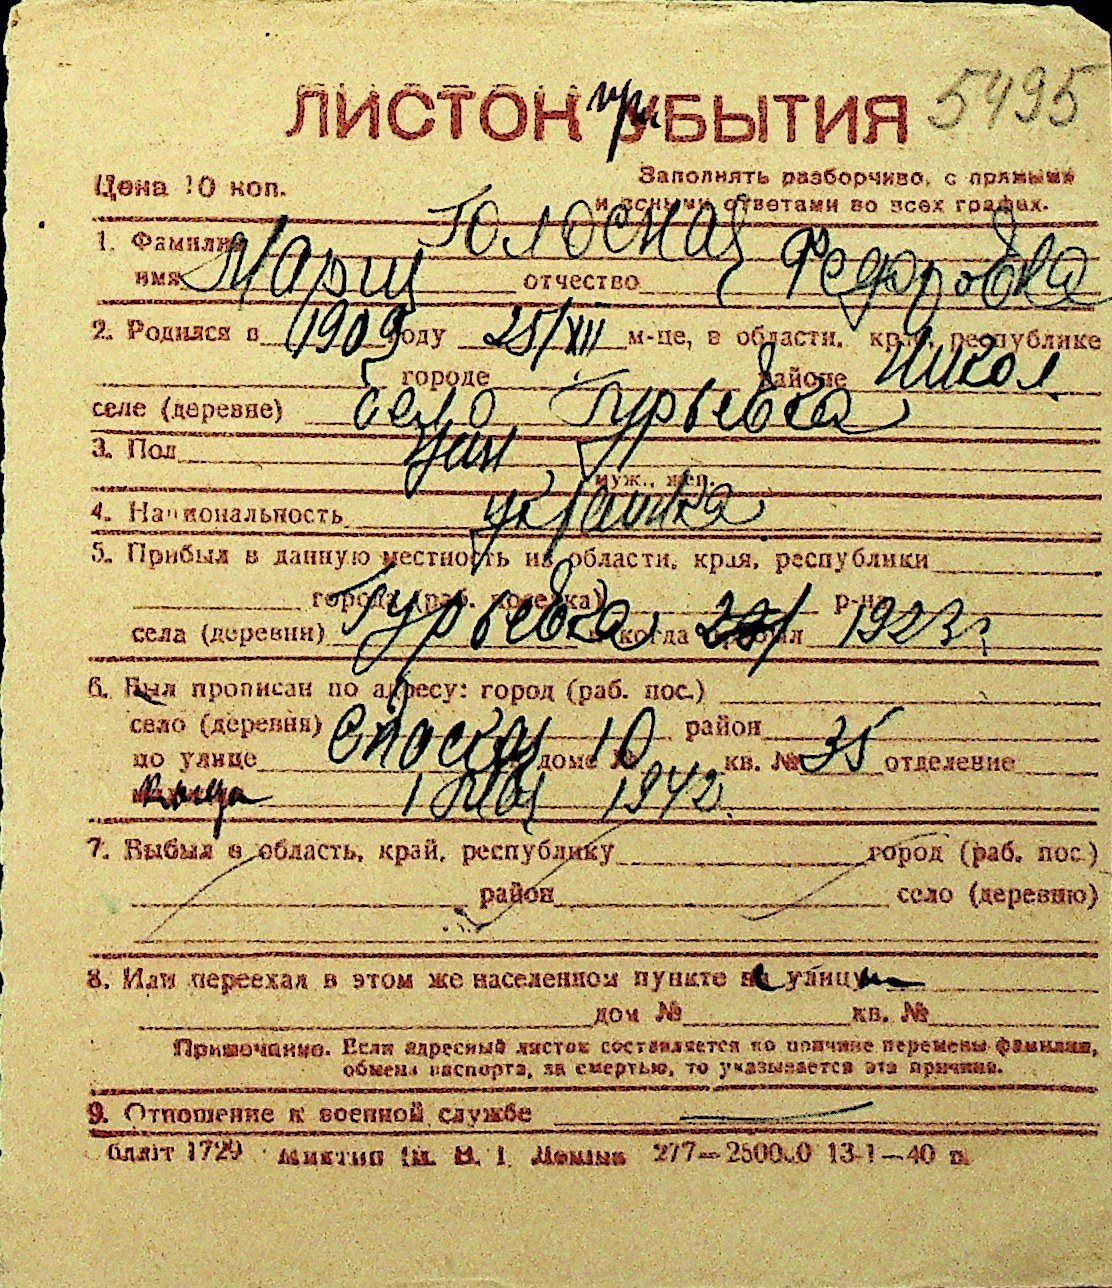 ЛИСТОК при УБЫТИЯ 5495
Цена 10 коп. Заполнять разборчиво, с прямыми
и ясными ответами во всех графах.
1. Фамилия Голосная
имя Мария отчество Федоровка
2. Родился в 1909 году 25/XII м-це, в области, крае, республике
городе районе Никол.
селе (деревне) село Гурьевка
3. Пол жен
муж., жен.
4. Национальность украинка
5. Прибыл в данную местность из области, края, республики
города (раб. поселка) р-на
села (деревни) Гурьевка и когда прибыл 1923 г.
6. Был прописан по адресу: город (раб. пос.)
село (деревня) район
по улице Спаской доме № 10 кв. № 35 отделение
1 мая 1942.
7. Выбыл в область, край, республику город (раб. пос.)
район село (деревню)
8. Или переехал в этом же населенном пункте на улицу
дом № кв. №
Примечание. Если адресный листок составляется по причине перемены фамилии,
обмена паспорта, за смертью, то указывается эта причина.
9. Отношение к военной службе
1729 277—250000 13-1—40 г.